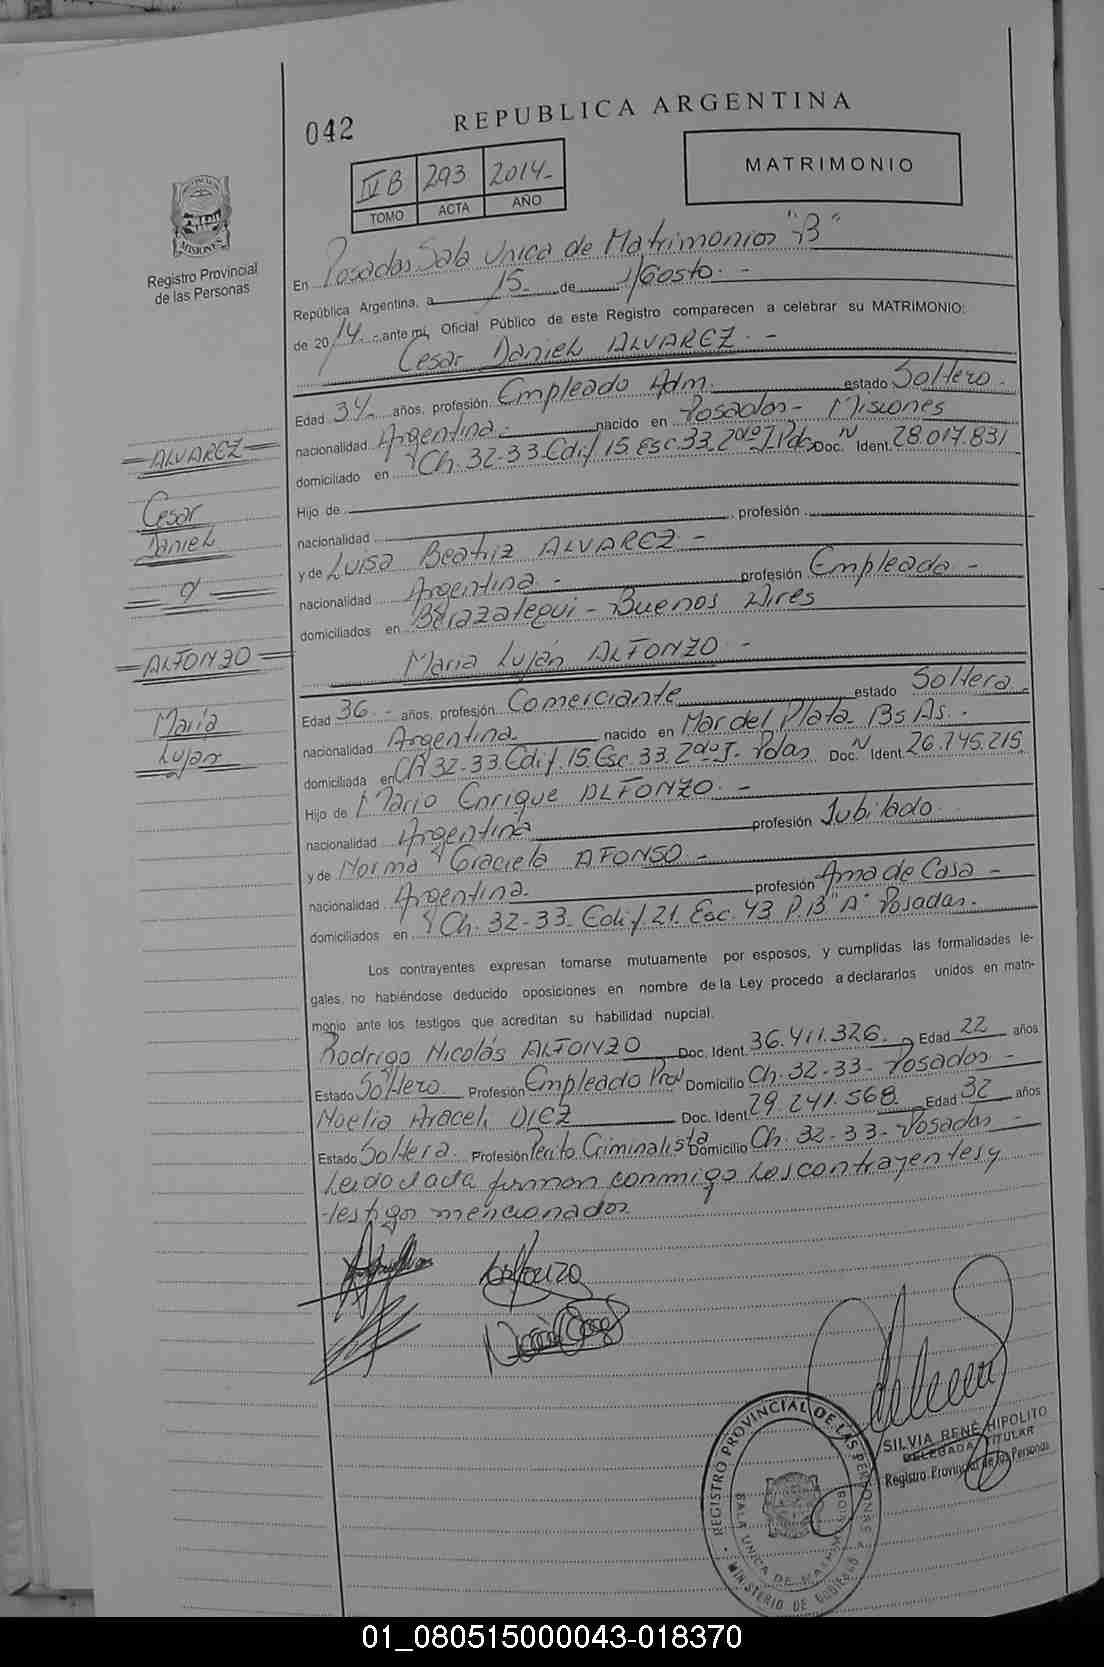 042
REPUBLICA ARGENTINA
IV B 293 2014.-
TOMO ACTA AÑO
MATRIMONIO
PROVINCIA
MISIONES
Registro Provincial
de las Personas
En Posadas Sala Unica de Matrimonios "B"
República Argentina, a 15.- de Agosto.-
de 2014.- ante mí, Oficial Público de este Registro comparecen a celebrar su MATRIMONIO:
Cesar Daniel ALVAREZ.-
Edad 34.- años, profesión Empleado Adm. estado Soltero.
nacionalidad Argentina.- nacido en Posadas- Misiones
domiciliado en Ch. 32-33. Edif 15. Esc. 33. 2do J. Pdas Doc. N Ident. 28.017.831
Hijo de
nacionalidad , profesión
y de Luisa Beatriz ALVAREZ-
nacionalidad Argentina.- profesión Empleada-
domiciliados en Berazategui- Buenos Aires
Maria Luján ALFONZO-
Edad 36.- años, profesión Comerciante estado Soltera-
nacionalidad Argentina. nacido en Mar del Plata Bs As.-
domiciliada en Ch 32-33. Edif. 15. Esc. 33. 2do J. Pdas Doc. N Ident. 26.745.215
Hijo de Mario Enrique ALFONZO.-
nacionalidad Argentina profesión Jubilado.
y de Norma Graciela AFONSO-
nacionalidad Argentina. profesión Ama de Casa-
domiciliados en Ch. 32-33. Edif. 21. Esc. 43 P.B "A" Posadas.
Los contrayentes expresan tomarse mutuamente por esposos, y cumplidas las formalidades le-
gales, no habiéndose deducido oposiciones en nombre de la Ley procedo a declararlos unidos en matri-
monio ante los testigos que acreditan su habilidad nupcial.
Rodrigo Nicolás ALFONZO Doc. Ident. 36.411.326. Edad 22 años
Estado Soltero. Profesión Empleado Prov Domicilio Ch. 32-33- Posadas-
Noelia Araceli DIEZ Doc. Ident. 29.241.568. Edad 32 años
Estado Soltera. Profesión Perito Criminalista Domicilio Ch. 32-33- Posadas-
Leido el acta firman conmigo los contrayentes y
testigos mencionados
ALVAREZ
Cesar
Daniel
y
ALFONZO
María
Luján
SILVIA RENÉ HIPOLITO
DELEGADA TITULAR
Registro Provincial de las Personas
REGISTRO PROVINCIAL DE LAS PERSONAS
MINISTERIO DE GOBIERNO
SALA UNICA DE MATRIMONIOS
01_080515000043-018370